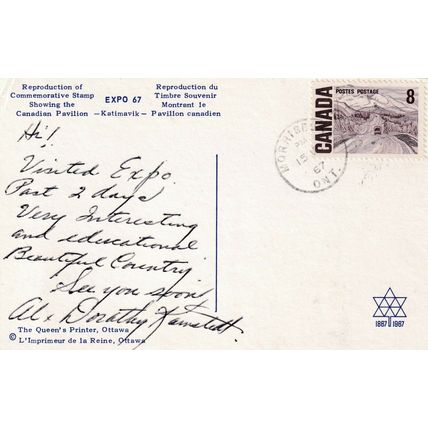 Reproduction of
Commemorative Stamp
Showing the
Canadian Pavilion
EXPO 67
—Katimavik—
Reproduction du
Timbre Souvenir
Montrant le
Pavillon canadien
Hi!
Visited Expo
Past 2 days
Very Interesting
and educational
Beautiful Country
See you soon,
Al & Dorothy
The Queen's Printer, Ottawa
© L'Imprimeur de la Reine, Ottawa
CANADA
POSTES POSTAGE
8
PM
15
67
ONT.
1867 1967